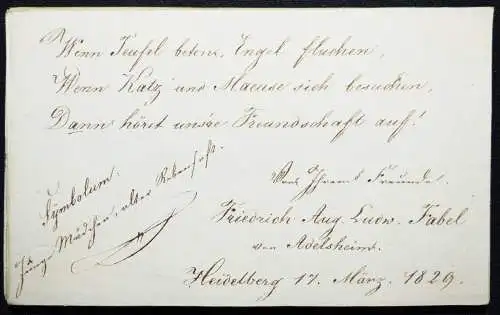 Wenn Teufel beten, Engel fluchen,
Wenn Katz und Maeuse sich besuchen,
Dann höret uns're Freundschaft auf!
Symbolum.
Junge Mädchen, alter Rebensaft.
Von Ihrem Freunde.
Friedrich Aug. Ludw. Fabel
von Adelsheim.
Heidelberg 17. März. 1829.